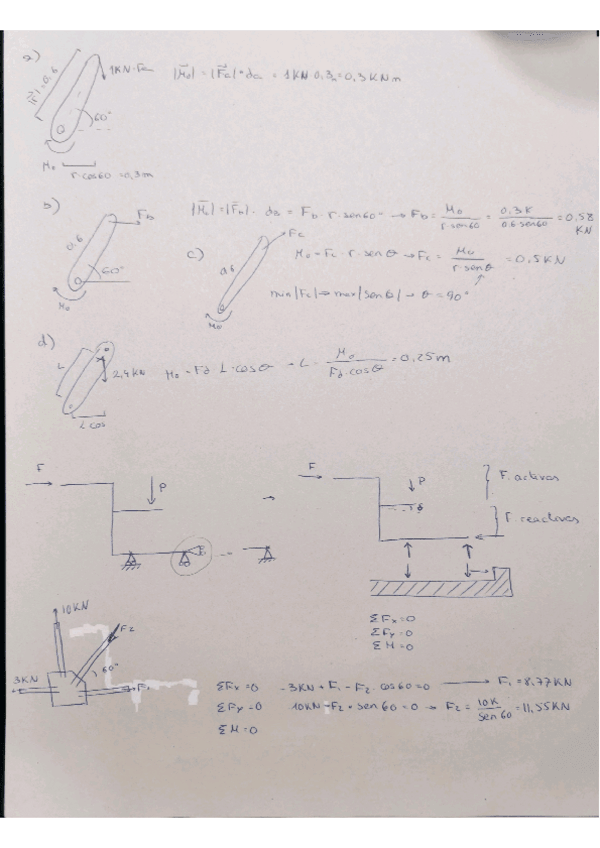 a)
|r|=0.6
1KN=Fa
|M̄o| = |F̄a|·da = 1KN·0,3m = 0,3KNm
60°
Mo
r·cos60=0,3m
b)
0.6
Fb
60°
Mo
|M̄o|=|F̄b|· db = Fb · r·sen60 → Fb = Mo / r·sen60 = 0,3K / 0.6 sen60 = 0,58 KN
c)
Fc
Mo
Mo = Fc · r · senθ → Fc = Mo / r·senθ = 0,5KN
min|Fc| → max|senθ| → θ=90°
d)
L
2,4KN
L·cos
Mo = Fd · L·cosθ → L = Mo / Fd·cosθ = 0,25m
F
P
→
F
P
F. activas
F. reactivas
ΣFx=0
ΣFy=0
ΣM=0
10KN
F2
60°
3KN
F1
ΣFx=0 -3KN+F1-F2·cos60=0 → F1=8,77KN
ΣFy=0 10KN-F2·sen60=0 → F2 = 10K / sen60 = 11,55KN
ΣM=0